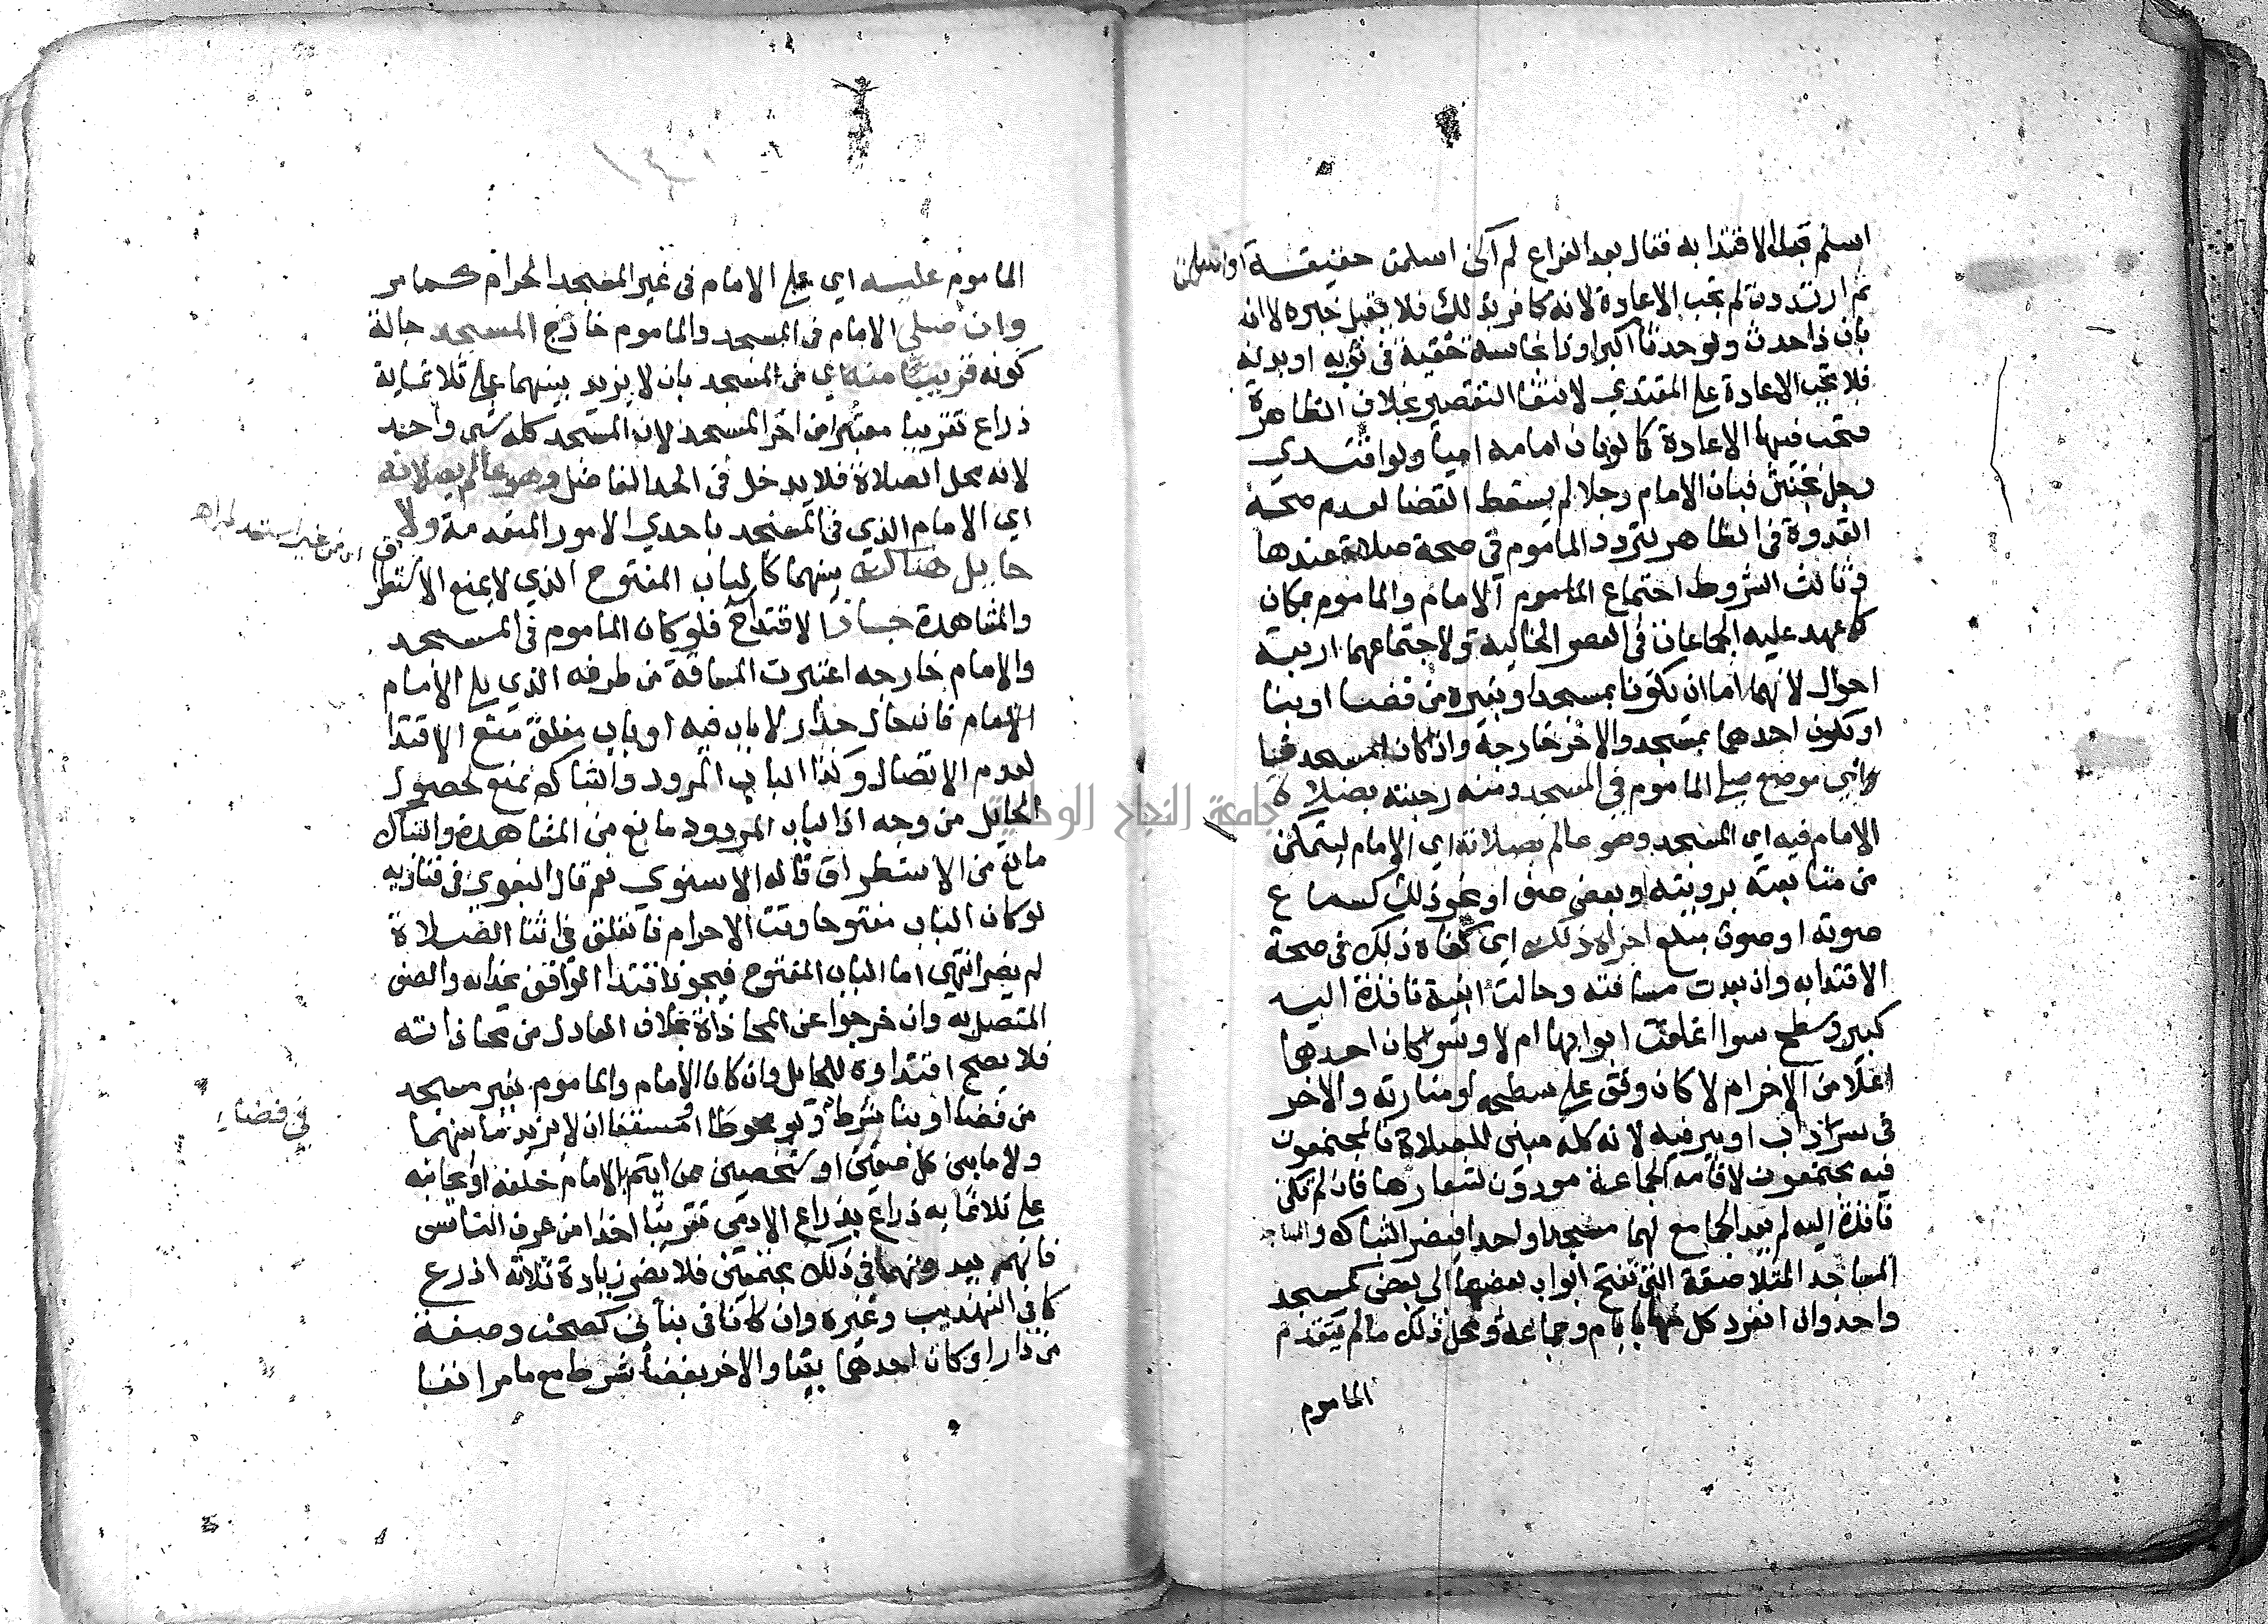 اسلم قبل الاقتدا به فقال بعد الفراغ لم اكن اسلمت حقيقة او اسلمت
ثم ارتددت لم تجب الاعادة لانه كافر بذلك فلا يقبل خبره لا ان
بان ذا حدث ولو حدثا اكبر او ذا نجاسة خفية في ثوبه او بدنه
فلا تجب الاعادة على المقتدي لانتفا التقصير بخلاف الظاهرة
فتجب فيها الاعادة كما لو بان امامه اميا ولو اقتدي
رجل بخنثى فبان الامام رجلا لم يسقط القضا لعدم صحة
القدوة في الظاهر لتردد الماموم في صحة صلاته عندها
وثالث الشروط اجتماع الامام والماموم بمكان
كما عهد عليه الجماعات في العصر الخالية ولاجتماعهما اربعة
احوال لانهما اما ان يكونا بمسجد او بغيره من فضا او بنا
او يكون احدهما بمسجد والاخر خارجه وان كان بمسجد
واي موضع صلى الماموم في المسجد ومنه رحبته بصلاة
الامام فيه اي المسجد وهو عالم بصلاته اي الامام ليتمكن
من متابعته برويته او بعض صف او نحو ذلك كسماع
صوته او صوت مبلغ اجزاه ذلك اي كفاه ذلك في صحة
الاقتدا به وان بعدت مسافته وحالت ابنية نافذة اليه
كبير وسطح سوا اغلقت ابوابها ام لا وسوا كان احدهما
اعلا من الاخر ام لا كان وقف على سطحه او منارته والاخر
في سرداب او بير فيه لانه كله مبنى للصلاة فالمجتمعون
فيه مجتمعون لاقامة الجماعة مودون لشعارها فان لم تكن
نافذة اليه لم يعد الجامع لهما مسجدا واحدا فيضر الشباك و
المساجد المتلاصقة التي تفتح ابواب بعضها الى بعض كمسجد
واحد وان انفرد كل منها بامام وجماعة ومحل ذلك ما لم يتقدم
الماموم
الماموم عليه اي على الامام في غير المسجد الحرام كما مر
وان صلى الامام في المسجد والماموم خارج المسجد حالة
كونه قريبا منه اي من المسجد بان لا يزيد بينهما على ثلاثماية
ذراع تقريبا معتبرا من اخر المسجد لان المسجد كله شي واحد
لانه محل الصلاة فلا يدخل في الحد الفاصل وهو عالم بصلاته
اي الامام الذي في المسجد باحدي الامور المتقدمة ولا
حايل هناك بينهما كالباب المفتوح الذي لا يمنع الاستطراق
والمشاهدة جاز الاقتدا فلو كان الماموم في المسجد
والامام خارجه اعتبرت المسافة من طرفه الذي يلي الامام
فان حال جدار لا باب فيه او باب مغلق منع الاقتدا
لعدم الاتصال وكذا الباب المردود والشباك يمنع لحصول
الحايل من وجه اذ الباب المردود مانع من المشاهدة والشباك
مانع من الاستطراق قاله الاسنوي نعم قال البغوي في فتاويه
لو كان الباب مفتوحا وقت الاحرام فانغلق في اثنا الصلاة
لم يضر انتهى اما الباب المفتوح فيجوز اقتدا الواقف بحذايه والصف
المتصل به وان خرجوا عن المحاذاة بخلاف العادل عن محاذاته
فلا يصح اقتداوه للحايل وان كان الامام والماموم بغير مسجد
من فضا او بنا شرط في فضاء ولو محوطا او مسقفا ان لا يزيد ما بينهما
ولا ما بين كل صفين او شخصين ممن ايتم بالامام خلفه او بجانبه
على ثلاثماية ذراع بذراع الادمي تقريبا اخذا من عرف الناس
فانهم يعدونهما في ذلك مجتمعين فلا يضر زيادة ثلاثة اذرع
كما في التهذيب وغيره وان كانا في بناين كصحن وصفة
من دار او كان احدهما ببنا والاخر بفضا شرط مع ما مر انفا
جامعة النجاح الوطنية